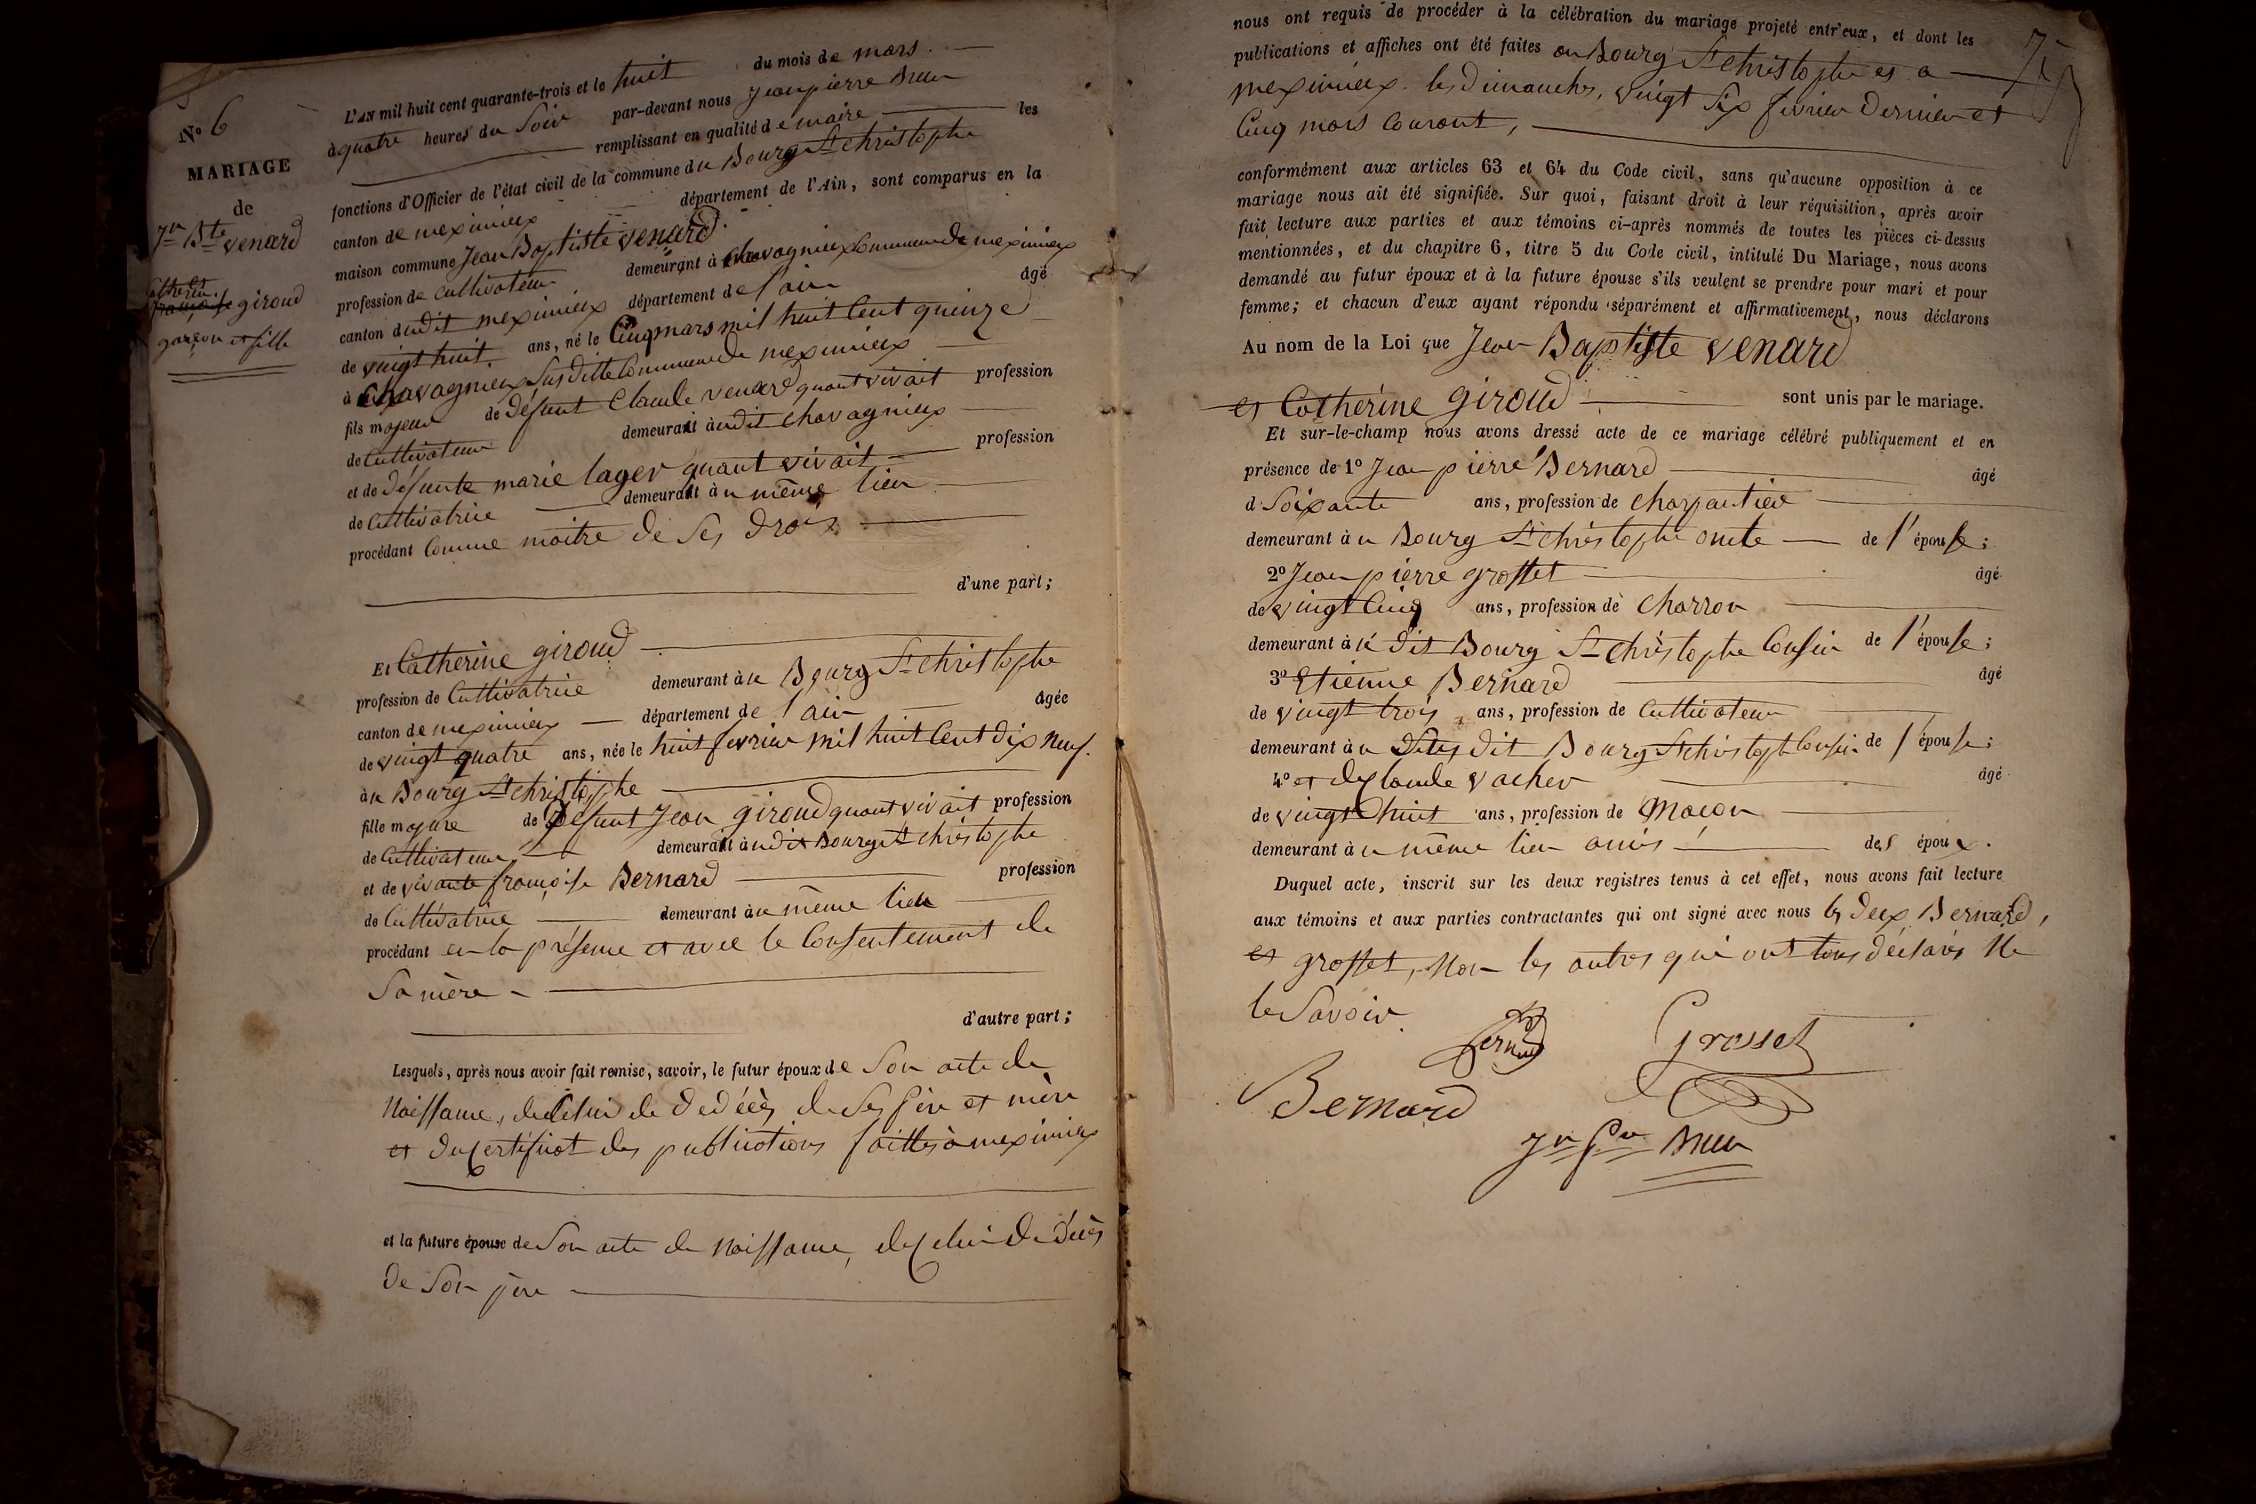 No 6
MARIAGE
de
Jn Bte venard
Catherine
françoise giroud
garçon et fille
L'AN mil huit cent quarante-trois et le huit du mois de mars
à quatre heures du Soir par-devant nous Jean pierre
remplissant en qualité de maire les
fonctions d'Officier de l'état civil de la commune du Bourg St christophe
canton de meximieux département de l'Ain, sont comparus en la
maison commune Jean Baptiste venard
profession de cultivateur demeurant à chavagnieux commune de meximieux
canton dudit meximieux département de l'ain âgé
de vingt huit ans, né le Cinq mars mil huit Cent quinze
à Chavagnieux Susditte Commune de meximieux
fils majeur de défunt Claude venard quant vivait profession
de Cultivateur demeurait audit chavagnieux
et de défunte marie lager quant vivait profession
de Cultivatrice demeurant au même lieu
procédant Comme maitre de Ses droix
d'une part;
Et Catherine giroud
profession de Cultivatrice demeurant au Bourg St christophe
canton de meximieux département de l'ain âgée
de vingt quatre ans, née le huit fevrier mil huit Cent dix neuf.
au Bourg St christophe
fille majure de Défunt Jean giroud quant vivait profession
de Cultivateur demeurait audit Bourg St christophe
et de vivante françoise Bernard profession
de Cultivatrice demeurant au même lieu
procédant en la présence et avec le Consentement de
Sa mère
d'autre part;
Lesquels, après nous avoir fait remise, savoir, le futur époux de Son acte de
Naissance, de Celui de dedécès de Ses père et mère
et du Certificat des publications faittes à meximieux
et la future épouse de Son acte de Naissance, de Celui de décès
de Son père
nous ont requis de procéder à la célébration du mariage projeté entr'eux, et dont les
publications et affiches ont été faites au Bourg St christophe et a
meximieux les dimanches, vingt Six fevrier Dernier et
Cinq mars Courant,
conformément aux articles 63 et 64 du Code civil, sans qu'aucune opposition à ce
mariage nous ait été signifiée. Sur quoi, faisant droit à leur réquisition, après avoir
fait lecture aux parties et aux témoins ci-après nommés de toutes les pièces ci-dessus
mentionnées, et du chapitre 6, titre 5 du Code civil, intitulé Du Mariage, nous avons
demandé au futur époux et à la future épouse s'ils veulent se prendre pour mari et pour
femme; et chacun d'eux ayant répondu séparément et affirmativement, nous déclarons
Au nom de la Loi que Jean Baptiste venard
et Cathérine giroud sont unis par le mariage.
Et sur-le-champ nous avons dressé acte de ce mariage célébré publiquement et en
présence de 1o Jean pierre Bernard âgé
d Soixante ans, profession de charpantier
demeurant au Bourg St christophe oncle de l'épouse;
2o Jean pierre grosset âgé
de vingt Cinq ans, profession de charron
demeurant au dit Bourg St christophe Cousin de l'épouse;
3o Etienne Bernard âgé
de vingt trois ans, profession de Cultivateur
demeurant au dit Bourg St christophe Cousin de l'épouse;
4o et de Claude vacher âgé
de vingt huit ans, profession de maçon
demeurant au même lieu amis des époux.
Duquel acte, inscrit sur les deux registres tenus à cet effet, nous avons fait lecture
aux témoins et aux parties contractantes qui ont signé avec nous les deux Bernard,
et grosset, Non les autres qui ont tous déclarés Ne
le Savoir.
Bernard
Grosset
Bernard
Jn Pre